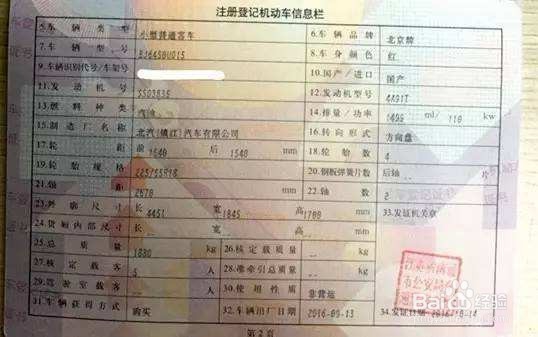 注册登记机动车信息栏
5.车辆类型 小型普通客车 6.车辆品牌 北京牌
7.车辆型号 BJ6450U015 8.车身颜色 红
9.车辆识别代号/车架号 10.国产/进口 国产
11.发动机号 12.发动机型号 4A91T
13.燃料种类 汽油 14.排量/功率 1499 ml/ 110 kw
15.制造厂名称 北汽(镇江)汽车有限公司 16.转向形式 方向盘
17.轮距 前 1540 后 1540 mm 18.轮胎数 4
19.轮胎规格 225/55R18 20.钢板弹簧片数 后轴 -- 片
21.轴距 2670 mm 22.轴数 2
23.外廓尺寸 长 4451 宽 1845 高 1700 mm 33.发证机关章
24.货厢内部尺寸 长 宽 高 mm
25.总质量 kg 26.核定载质量 kg
27.核定载客 5 人 28.准牵引总质量 kg
29.驾驶室载客 人 30.使用性质 非营运
31.车辆获得方式 购买 32.车辆出厂日期 2016-09-13 34.发证日期
第2页
Baidu经验